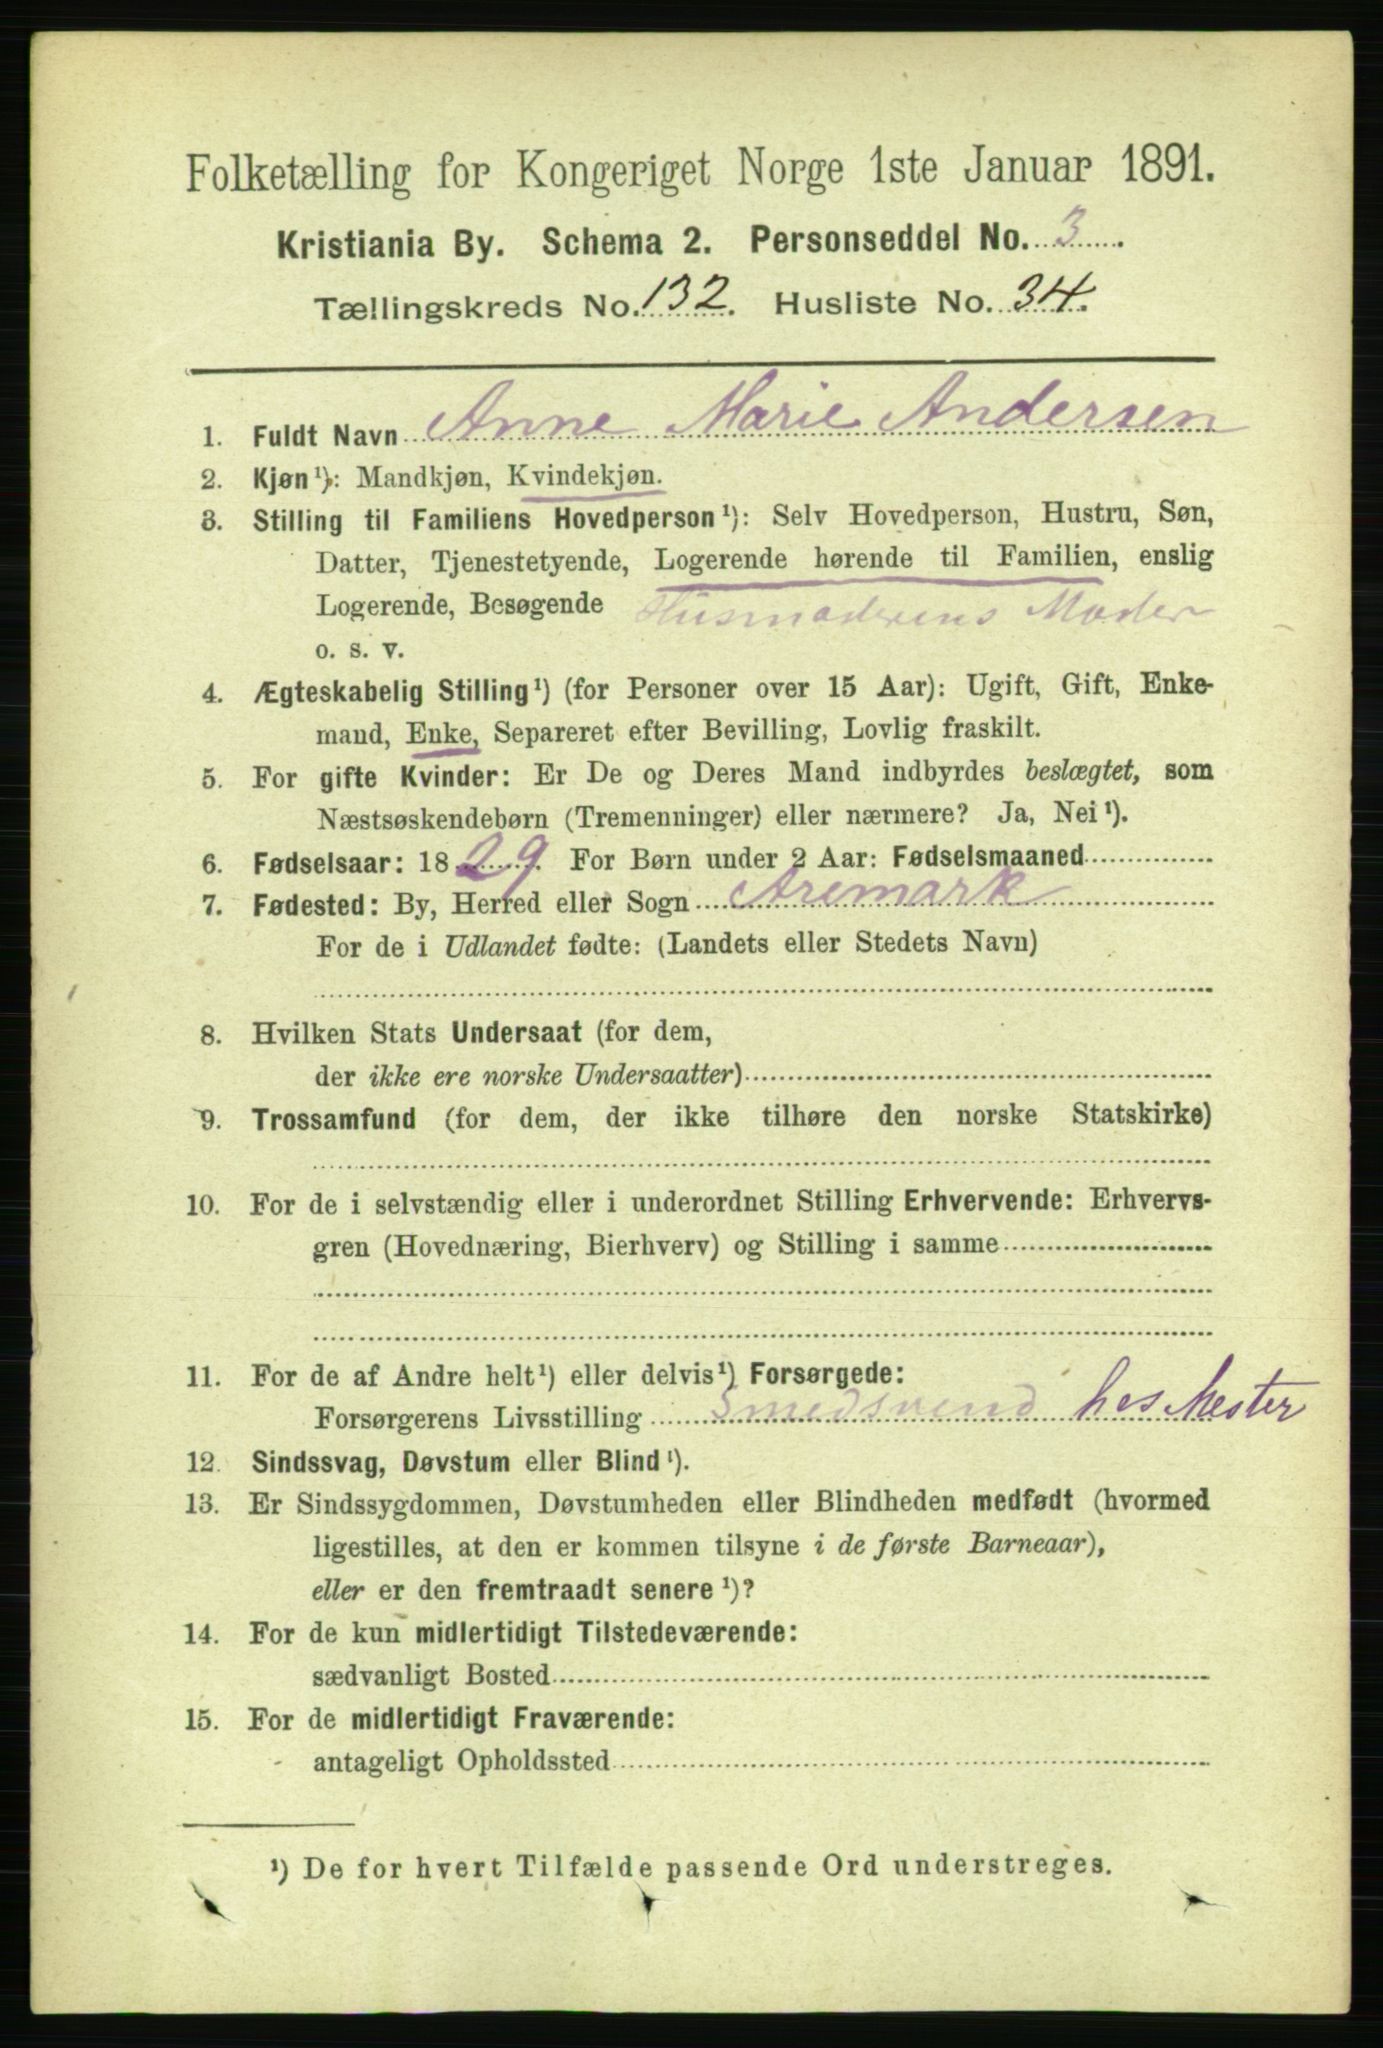 Folketælling for Kongeriget Norge 1ste Januar 1891.
Kristiania By. Schema 2. Personseddel No. 3.
Tællingskreds No. 132. Husliste No. 34.
1. Fuldt Navn Anne Marie Andersen
2. Kjøn¹): Mandkjøn, Kvindekjøn.
3. Stilling til Familiens Hovedperson¹): Selv Hovedperson, Hustru, Søn,
Datter, Tjenestetyende, Logerende hørende til Familien, enslig
Logerende, Besøgende Husmoderens Moder
o. s. v.
4. Ægteskabelig Stilling¹) (for Personer over 15 Aar): Ugift, Gift, Enke-
mand, Enke, Separeret efter Bevilling, Lovlig fraskilt.
5. For gifte Kvinder: Er De og Deres Mand indbyrdes beslægtet, som
Næstsøskendebørn (Tremenninger) eller nærmere? Ja, Nei¹).
6. Fødselsaar: 1829. For Børn under 2 Aar: Fødselsmaaned
7. Fødested: By, Herred eller Sogn Aremark
For de i Udlandet fødte: (Landets eller Stedets Navn)
8. Hvilken Stats Undersaat (for dem,
der ikke ere norske Undersaatter)
9. Trossamfund (for dem, der ikke tilhøre den norske Statskirke)
10. For de i selvstændig eller i underordnet Stilling Erhvervende: Erhvervs-
gren (Hovednæring, Bierhverv) og Stilling i samme
11. For de af Andre helt¹) eller delvis¹) Forsørgede:
Forsørgerens Livsstilling Smedsvend hos Mester
12. Sindssvag, Døvstum eller Blind¹).
13. Er Sindssygdommen, Døvstumheden eller Blindheden medfødt (hvormed
ligestilles, at den er kommen tilsyne i de første Barneaar),
eller er den fremtraadt senere¹)?
14. For de kun midlertidigt Tilstedeværende:
sædvanligt Bosted
15. For de midlertidigt Fraværende:
antageligt Opholdssted
¹) De for hvert Tilfælde passende Ord understreges.